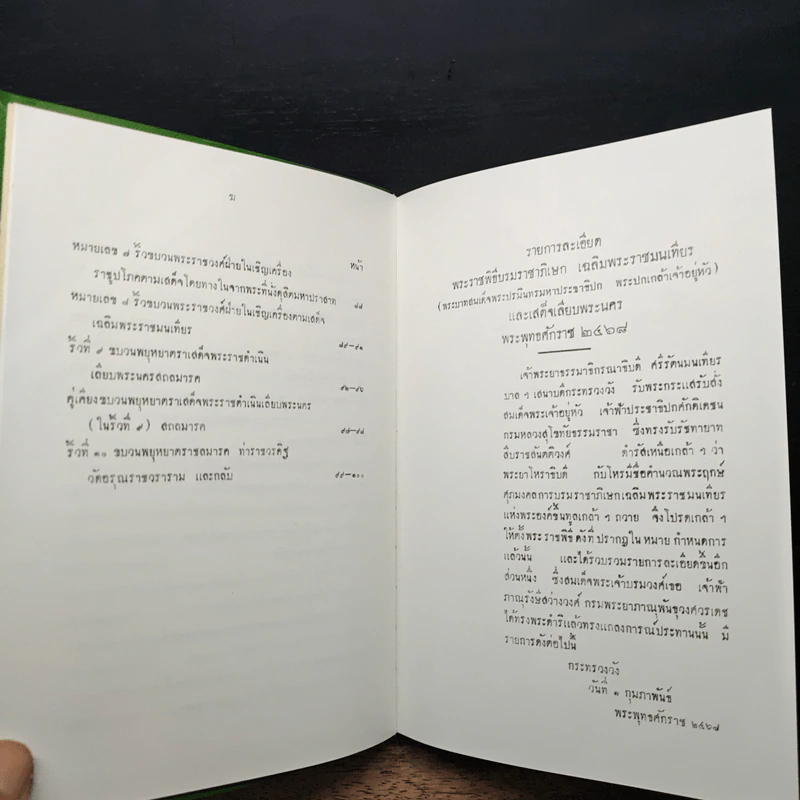 ฆ
หน้า
หมายเลข ๗ ริ้วขบวนพระราชวงศ์ฝ่ายในเชิญเครื่อง
ราชูปโภคตามเสด็จโดยทางในจากพระที่นั่งดุสิตมหาปราสาท ๘๘
หมายเลข ๘ ริ้วขบวนพระราชวงศ์ฝ่ายในเชิญเครื่องตามเสด็จ
เฉลิมพระราชมนเทียร ๘๙-๙๑
ริ้วที่ ๙ ขบวนพยุหยาตราเสด็จพระราชดำเนิน
เลียบพระนครสถลมารค ๙๒-๙๖
คู่เคียงขบวนพยุหยาตราเสด็จพระราชดำเนินเลียบพระนคร
(ในริ้วที่ ๙) สถลมารค ๙๗-๙๘
ริ้วที่ ๑๐ ขบวนพยุหยาตราชลมารค ท่าราชวรดิฐ
วัดอรุณราชวราราม และกลับ ๙๙-๑๐๐
รายการละเอียด
พระราชพิธีบรมราชาภิเษก เฉลิมพระราชมนเทียร
(พระบาทสมเด็จพระปรมินทรมหาประชาธิปก พระปกเกล้าเจ้าอยู่หัว)
และเสด็จเลียบพระนคร
พระพุทธศักราช ๒๔๖๘
เจ้าพระยาธรรมาธิกรณาธิบดี ศรีรัตนมนเทียร
บาล ฯ เสนาบดีกระทรวงวัง รับพระกระแสรับสั่ง
สมเด็จพระเจ้าอยู่หัว เจ้าฟ้าประชาธิปกศักดิเดชน
กรมหลวงสุโขทัยธรรมราชา ซึ่งทรงรับรัชทายาท
สืบราชสันตติวงศ์ ดำรัสเหนือเกล้า ฯ ว่า
พระยาโหราธิบดี กับโหรมีชื่อคำนวณพระฤกษ์
ศุภมงคลการบรมราชาภิเษกเฉลิมพระราชมนเทียร
แห่งพระองค์ขึ้นทูลเกล้า ฯ ถวาย จึงโปรดเกล้า ฯ
ให้ตั้งพระราชพิธีดังที่ปรากฏใน หมาย กำหนดการ
แล้วนั้น และได้รวบรวมรายการละเอียดขึ้นอีก
ส่วนหนึ่ง ซึ่งสมเด็จพระเจ้าบรมวงศ์เธอ เจ้าฟ้า
ภาณุรังษีสว่างวงศ์ กรมพระยาภาณุพันธุวงศ์วรเดช
ได้ทรงพระดำริแล้วทรงแถลงการณ์ประทานนั้น มี
รายการดังต่อไปนี้
กระทรวงวัง
วันที่ ๑ กุมภาพันธ์
พระพุทธศักราช ๒๔๖๘